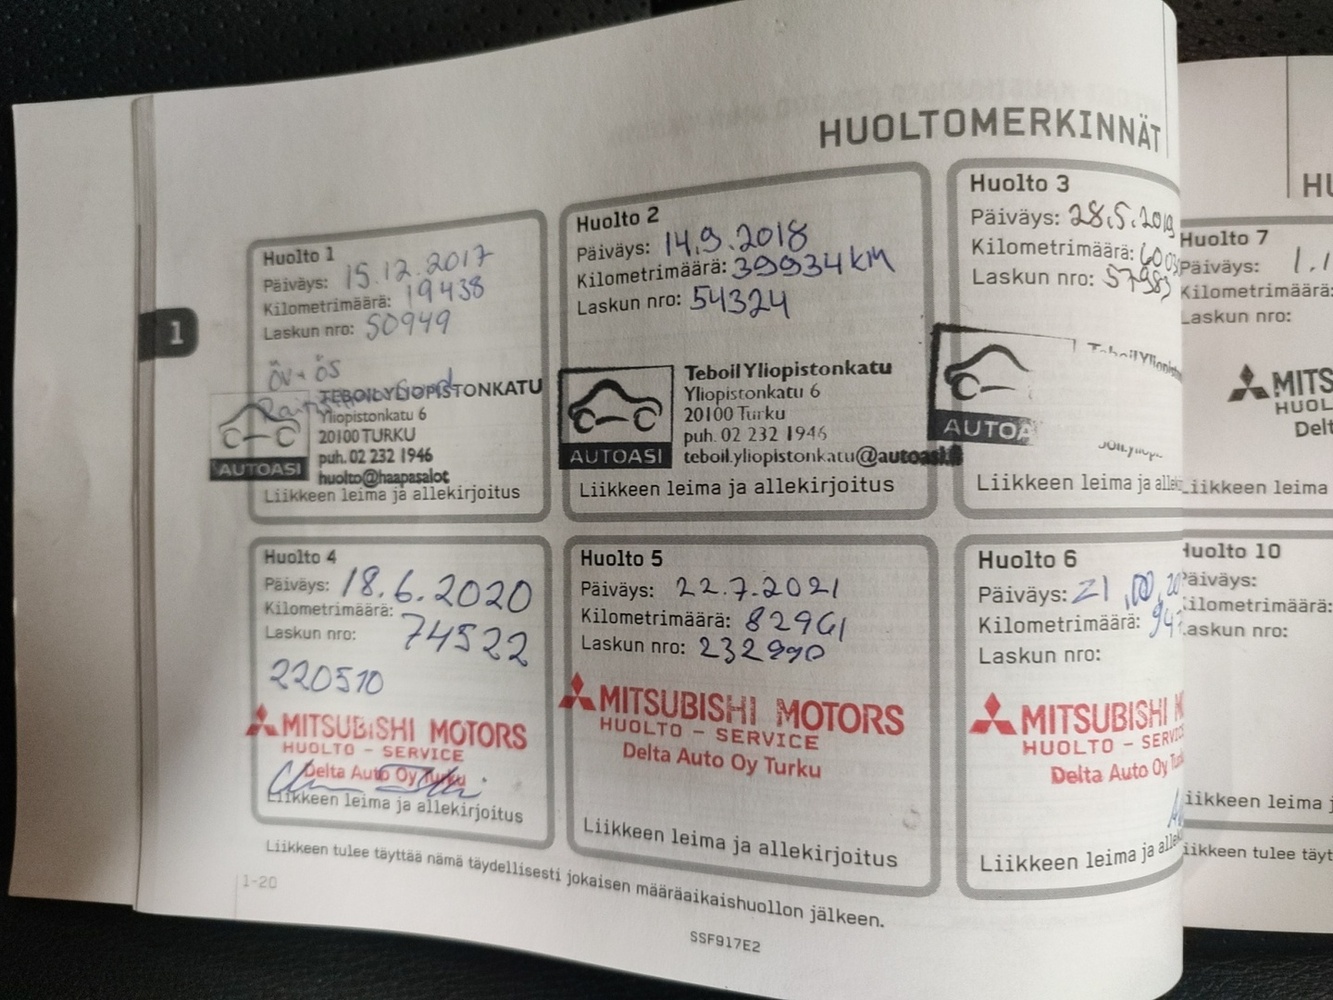 HUOLTOMERKINNÄT
Huolto 1
Päiväys: 15.12.2017
Kilometrimäärä: 19438
Laskun nro: 50949
ÖV+ÖS
TEBOIL YLIOPISTONKATU
Yliopistonkatu 6
20100 TURKU
puh. 02 232 1946
huolto@haapasalot
AUTOASI
Liikkeen leima ja allekirjoitus
Huolto 2
Päiväys: 14.9.2018
Kilometrimäärä: 39934 KM
Laskun nro: 54324
Teboil Yliopistonkatu
Yliopistonkatu 6
20100 Turku
puh. 02 232 1946
teboil.yliopistonkatu@autoasi.fi
AUTOASI
Liikkeen leima ja allekirjoitus
Huolto 3
Päiväys: 28.5.2019
Kilometrimäärä:
Laskun nro: 57983
AUTOA
Liikkeen leima ja
Huolto 4
Päiväys: 18.6.2020
Kilometrimäärä: 74522
Laskun nro:
220510
MITSUBISHI MOTORS
HUOLTO - SERVICE
Delta Auto Oy Turku
Liikkeen leima ja allekirjoitus
Huolto 5
Päiväys: 22.7.2021
Kilometrimäärä: 82961
Laskun nro: 232990
MITSUBISHI MOTORS
HUOLTO - SERVICE
Delta Auto Oy Turku
Liikkeen leima ja allekirjoitus
Huolto 6
Päiväys:
Kilometrimäärä:
Laskun nro:
MITSUBISHI
HUOLTO - SERVIC
Delta Auto Oy
Liikkeen leima ja
Liikkeen tulee täyttää nämä täydellisesti jokaisen määräaikaishuollon jälkeen.
1-20
SSF917E2
1
HU
Huolto 7
Päiväys: 1.1
Kilometrimäärä:
Laskun nro:
MITS
HUOL
Delt
Liikkeen leima
Huolto 10
Päiväys:
Kilometrimäärä:
Laskun nro:
iikkeen leima j
iikkeen tulee täyt